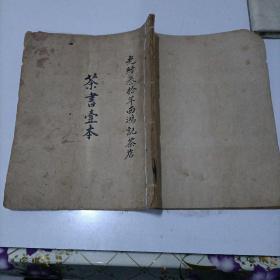 光緒叁拾年西鴻記茶店
茶書壹本